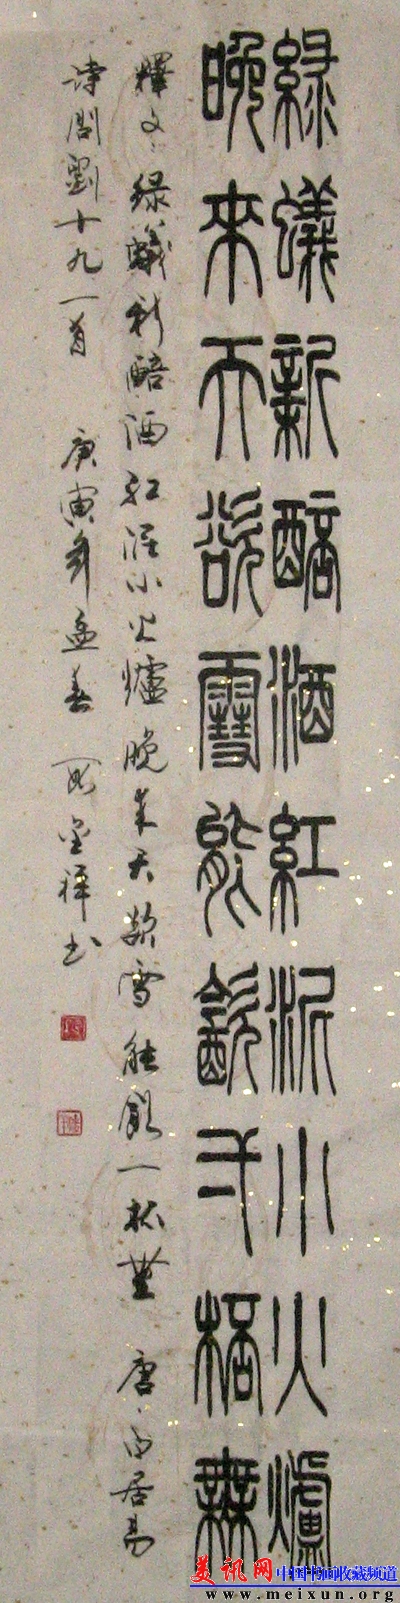 綠蟻新醅酒紅泥小火爐
晚來天欲雪能飲一桮無
釋文:綠蟻新醅酒紅泥小火爐晚來天欲雪能飲一杯無 唐·白居易
詩問劉十九一首 庚寅年孟春 金祥书
美讯网
中国书画收藏频道
www.meixun.org